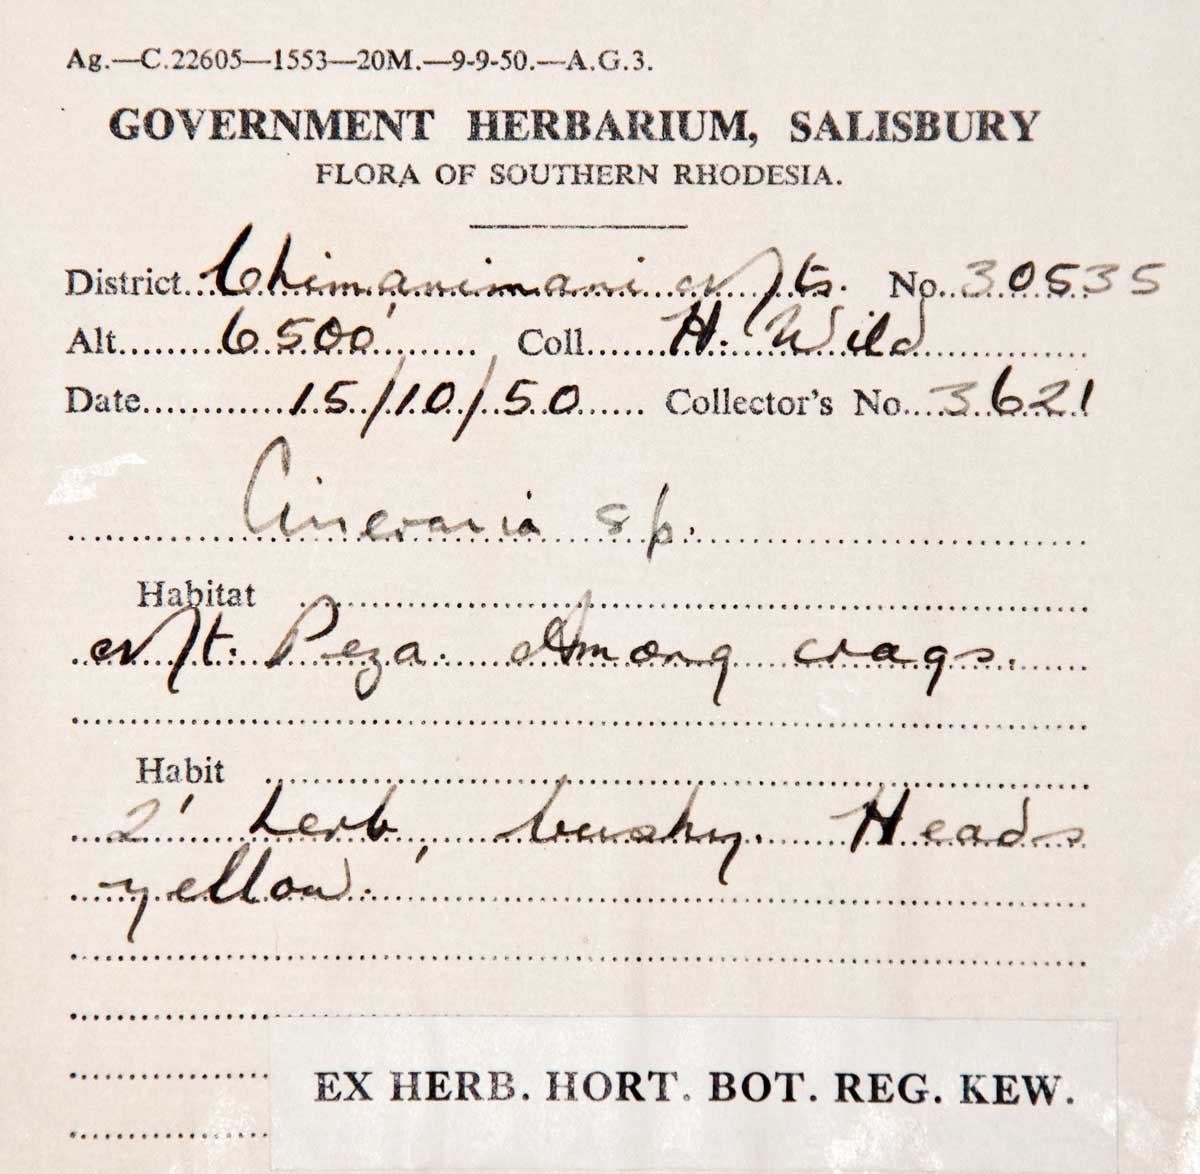 Ag.—C.22605—1553—20M.—9-9-50.—A.G.3.
GOVERNMENT HERBARIUM, SALISBURY
FLORA OF SOUTHERN RHODESIA.
District Chimanimani Mts. No. 30535
Alt. 6500' Coll. H. Wild
Date 15/10/50 Collector's No. 3621
Cineraria sp.
Habitat
Mt. Peza. Among crags.
Habit
2' herb, bushy. Heads
yellow.
EX HERB. HORT. BOT. REG. KEW.